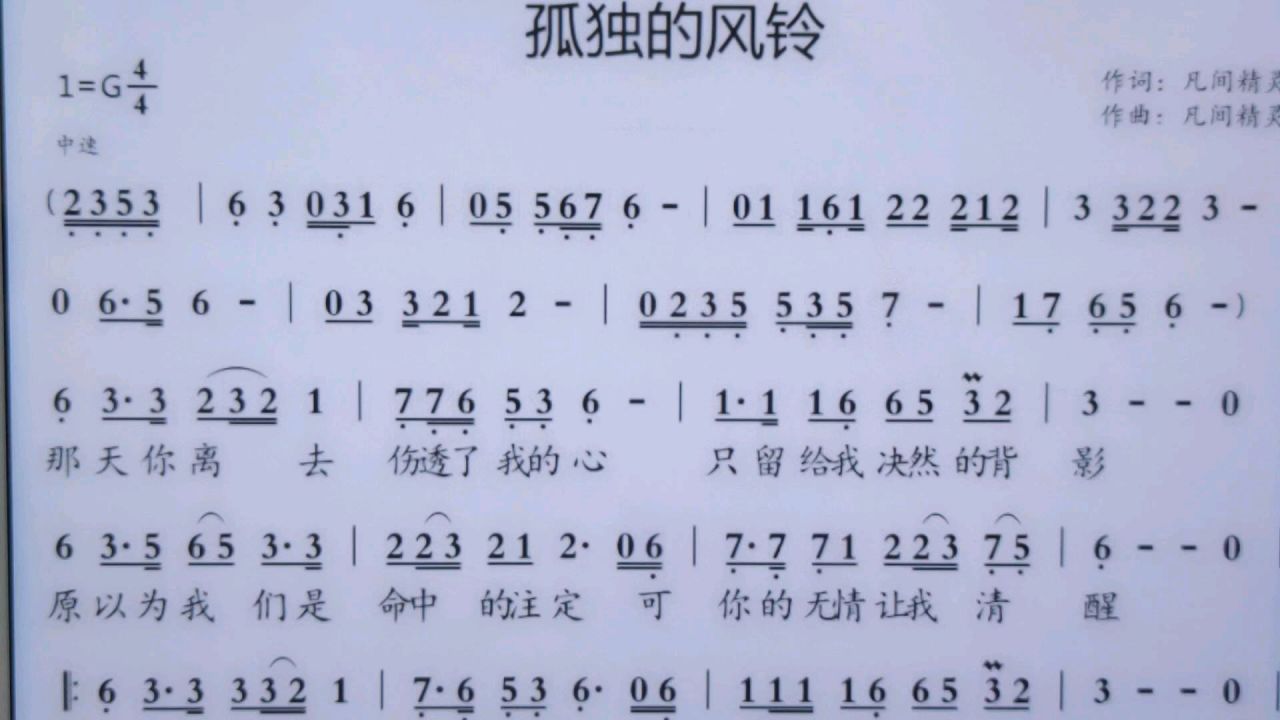 孤独的风铃
1=G 4/4
作词：凡间精灵
作曲：凡间精灵
中速
（2353 | 6 3 031 6 | 05 567 6 - | 01 161 22 212 | 3 322 3 -
0 6·5 6 - | 03 321 2 - | 0235 535 7 - | 17 65 6 -）
6 3·3 232 1 | 776 53 6 - | 1·1 16 65 32 | 3 - - 0
那天你离 去 伤透了 我的心 只留给我 决然的背 影
6 3·5 65 3·3 | 223 21 2· 06 | 7·7 71 223 75 | 6 - - 0
原以为我 们是 命中 的注定 可 你的无情让我 清 醒
‖: 6 3·3 332 1 | 7·6 53 6· 06 | 111 16 65 32 | 3 - - 0